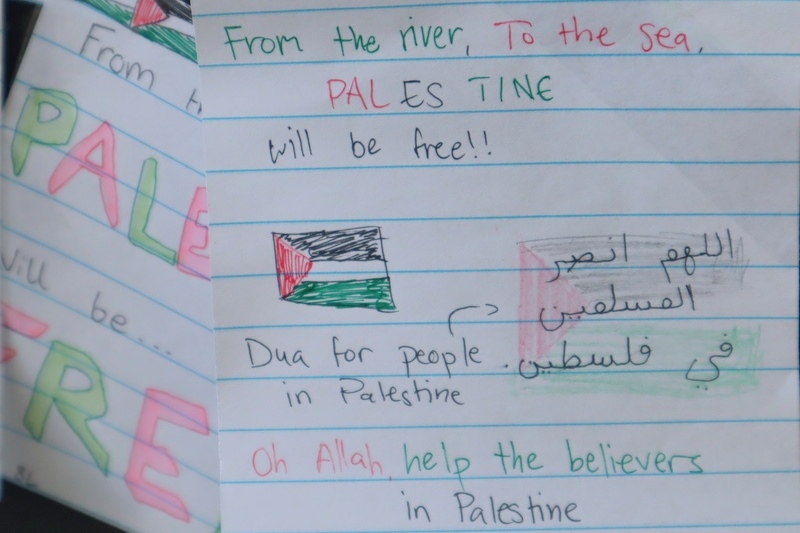 From the river, To the sea,
PALESTINE
will be free!!
اللهم انصر
المسلمين
في فلسطين.
Dua for people
in Palestine
Oh Allah, help the believers
in Palestine
From
PALE
will be...
FRE